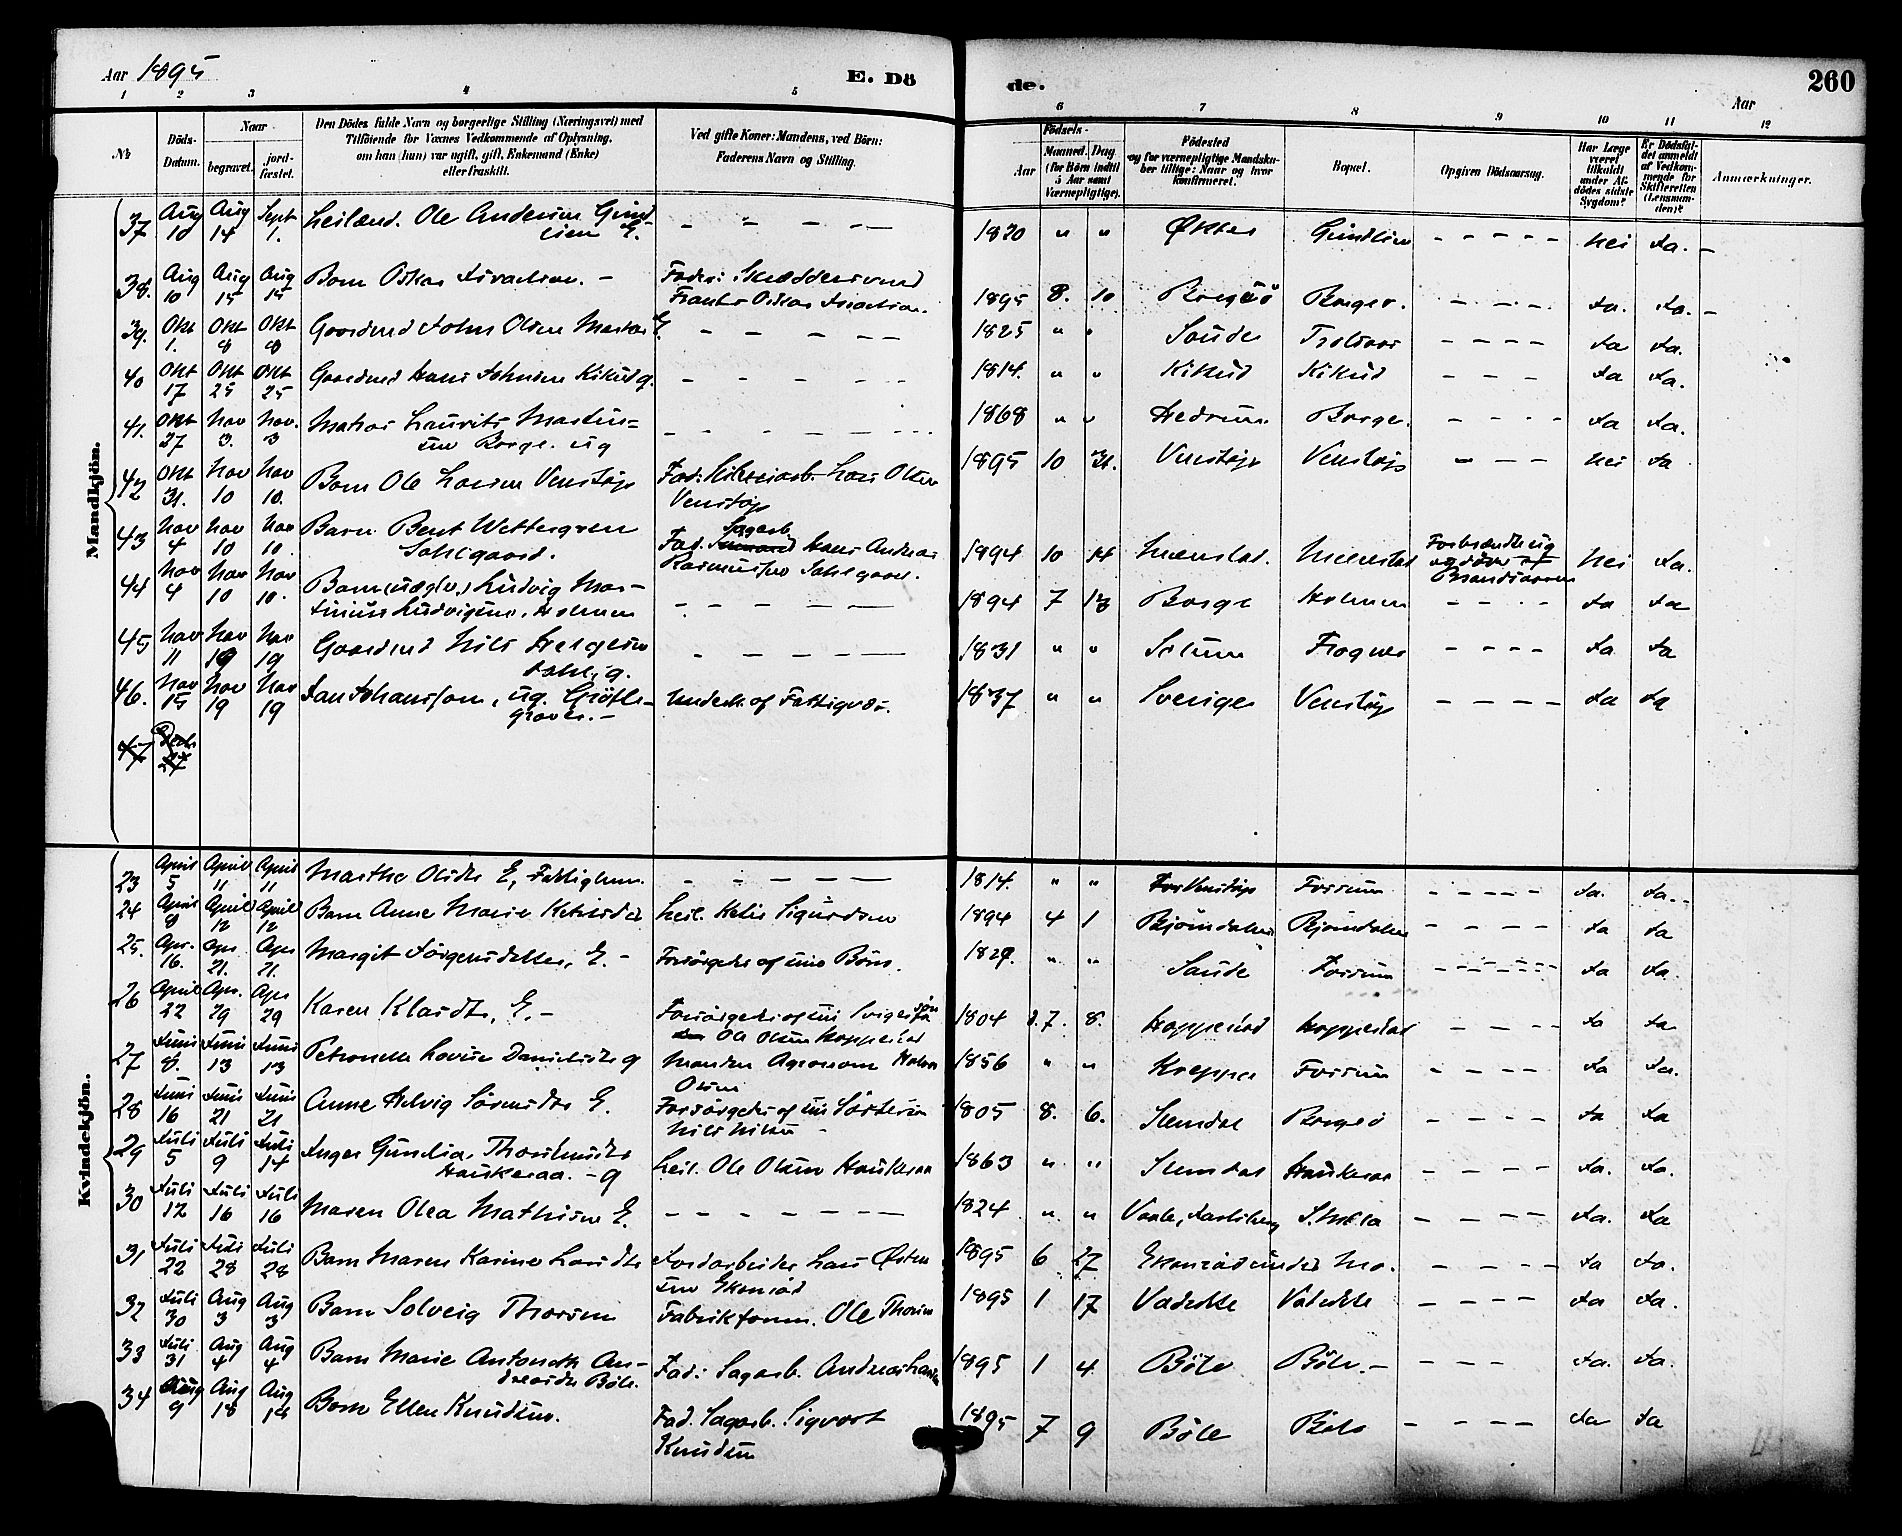 Aar 1895
E. Dö
de.
260
Aar
1 2 3 4 5 6 7 8 9 10 11 12
№
Döds-Datum.
Naar
begravet.
jord-fæstet.
Den Dödes fulde Navn og borgerlige Stilling (Næringsvei) med
Tilföiende for Voxnes Vedkommende af Oplysning,
om han (hun) var ugift, gift, Enkemand (Enke)
eller fraskilt.
Ved gifte Koner: Mandens, ved Börn:
Faderens Navn og Stilling.
Födsels-
Aar
Maaned. Dag
(for Börn indtil
5 Aar samt
Værnepligtige).
Födested
og for værnepligtige Mandskaber tillige: Naar og hvor
konfirmeret.
Bopæl.
Opgiven Dödsaarsag.
Har Læge
været
tilkaldt
under Afdödes sidste
Sygdom?
Er Dödsfaldet anmeldt
af Vedkommende for
Skifteretten
(Lensmanden)?
Anmærkninger.
Mandkjön.
37 Aug 10 Aug 14 Sept 1. Leilænd. Ole Andersen Grind-lien E. 1820 " " Økter Grindlien Nei Ja.
38. Aug 10 Aug 15 Aug 15 Barn Oskar 1895 8. 10 Ja. Ja.
39. Okt 1. Okt 8 Okt 8 Gaardmd John Olsen E. 1825 " " Saude Ja Ja.
40 Okt 17 Okt 25 Okt 25 Gaardmd Hans Johnsen Kikud g. 1814. " " Kikud Kikud Ja Ja.
41. Okt 27 Nov 3. Nov. 3 Laurits Martin-sen Borge. ug 1868 " " Hedrum Borge. Ja Ja.
42 Okt 31. Nov 10 Nov 10. Barn Ole Larsen Venstøp Fad: Lars Olsen Venstøp 1895 10 31. Venstøp Venstøp Nei Ja
43 Nov 4 Nov 10 Nov 10. Barn Bent Wettergren Sahlgaard. Fad. Sagarb. Hans Andreas Rasmussen Sahlgaard. 1894 10 14 Menstad. Menstad Nei Ja.
44 Nov 4 Nov 10 Nov 10. Barn (uægte.) Ludvig Mar-tinius Ludvigsen, Holmen 1894 7 13 Borge Holmen Ja Ja
45 Nov 11 Nov 19 Nov 19 Gaardmd Nils Dahl, g. 1831 " " Solum Frogner Ja Ja
46. Nov 15 Nov 19 Nov 19 Jan Johansson, ug. Grøfte-graver. Underh. af Fattigvæs. 1837 " " Sverige Venstøp Ja Ja
47
Kvindekjön.
23 April 5 April 11 April 11 Marthe Olsdtr E, Fattiglem. 1814. " " Venstøp Fossum Ja. Ja.
24 April 8 April 12 April 12 Barn Anne Marie Leil. Ketil Sigurdsen 1894 4 1 Bjørndalen Bjørndalen Ja Ja
25. Apr. 16. Apr 21. Apr 21. Margit Jørgensdatter, E. Forsørgedes af sine Børn. " " Saude Fossum Ja Ja.
26 April 22 Apr. 29 Apr 29 Karen E. Forsørgedes af sin Svigersøn Ole Olsen Hoppestad 1804 7. 8. Hoppestad Hoppestad Ja Ja
27 Juni 8. Juni 13 Juni 13 Petronelle Lovise Danielsdtr g Manden Agronom Olsen 1856 " " Kreppa Fossum Ja Ja.
28 Juni 16 Juni 21 Juni 21 Anne Helvig Sørensdtr E. Forsørgedes af sin Søstersøn Nils Nilsen 1805 8. 6. Slemdal Ja Ja
29 Juli 5 Juli 9 Juli 14 Inger Gundia Haukeraa. g Leil. Ole Olsen Haukeraa 1863 " " Slemdal Haukeraa Ja. Ja.
30 Juli 12 Juli 16 Juli 16 Maren Olea Mathisen E. 1824 " " Vaale, Jarlsberg Ja. Ja
31 Juli 22 Juli 28 Juli 28 Barn Maren Karine Larsdtr Jordarbeider Lars Østensen 1895 6 27 Mo. Ja Ja.
32 Juli 30 Aug 3 Aug 3 Barn Solveig Thorsen Fabrikform. Ole Thorsen 1895 1 17 Ja Ja.
33 Juli 31 Aug 4 Aug 4 Barn Marie Antonette An-dreasdtr Bøle. Fad: Sagarb. Andreas Hansen 1895 1 4 Bøle Bøle. Ja. Ja.
34 Aug 9 Aug 18 Aug 18 Barn Ellen Knudsen. Fad. Sagarb. Sigvart Knudsen 1895 7 9 Bøle Bøle Ja Ja